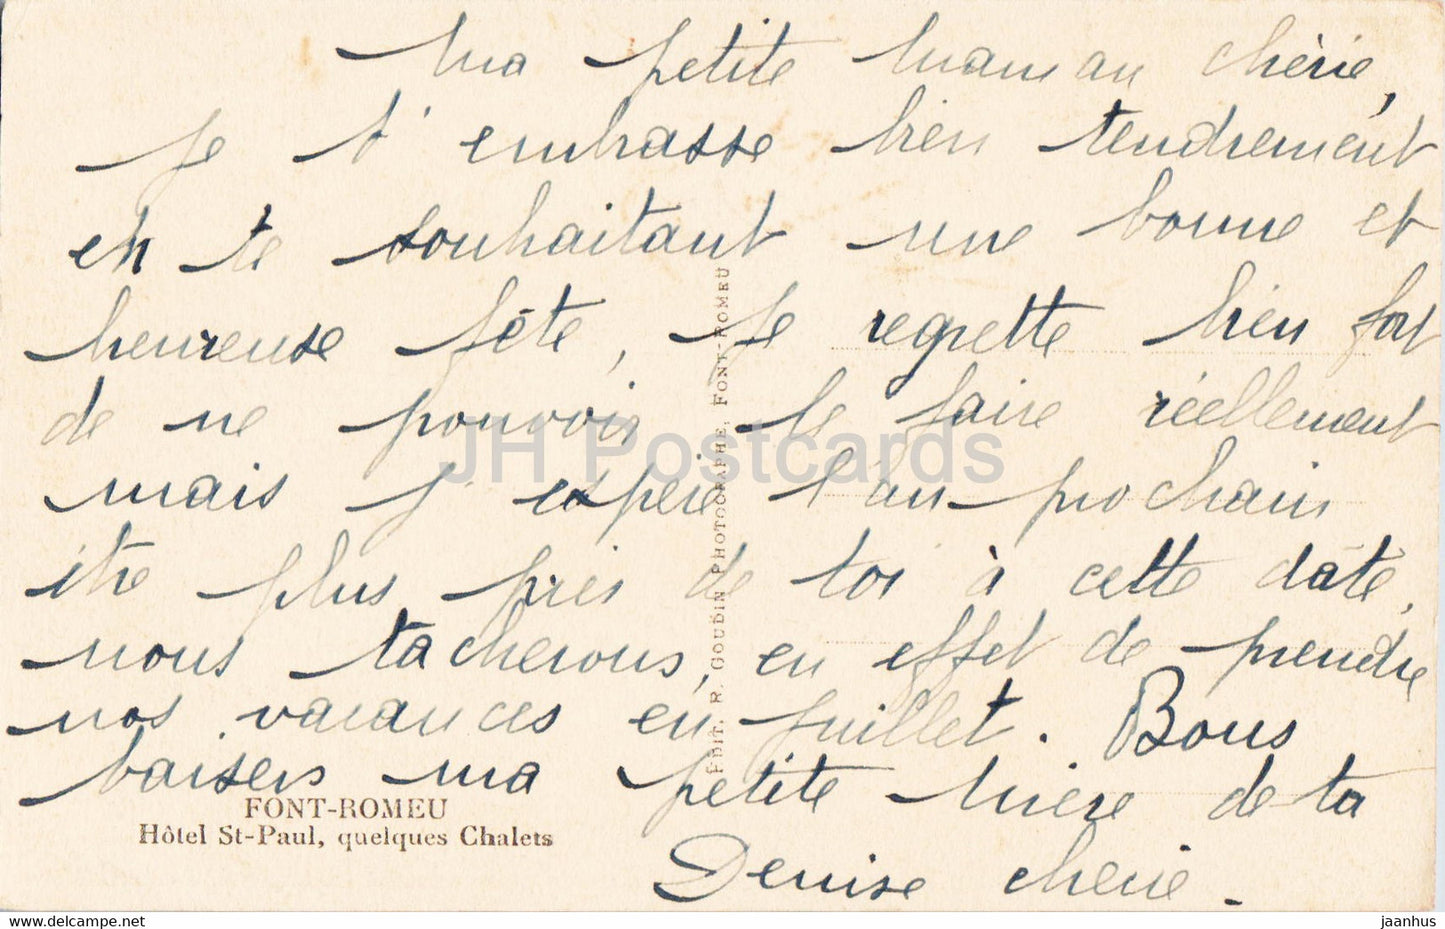 Ma petite maman chérie,
Je t'embrasse bien tendrement
en te souhaitant une bonne et
heureuse fête, je regrette bien fort
de ne pouvoir le faire réellement
mais j'espère l'an prochain
être plus près de toi à cette date,
nous tacherons, en effet de prendre
nos vacances en juillet. Bons
baisers ma petite mère de ta
Denise chérie.
FONT-ROMEU
Hôtel St-Paul, quelques Chalets
ÉDIT. R. GOUDIN PHOTOGRAPHE, FONT-ROMEU
JH Postcards
jaanhus